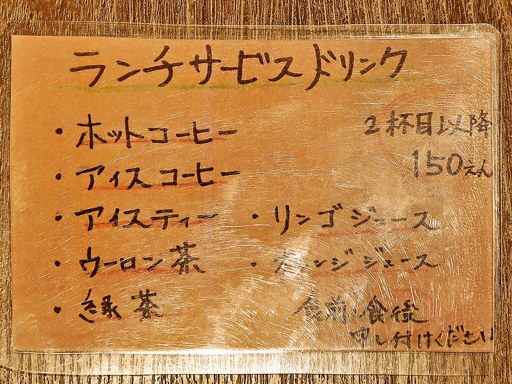 ランチサービスドリンク
・ホットコーヒー
2杯目以降
150えん
・アイスコーヒー
・アイスティー
・ウーロン茶
・緑茶
・リンゴジュース
・オレンジジュース
食前・食後
申し付けください